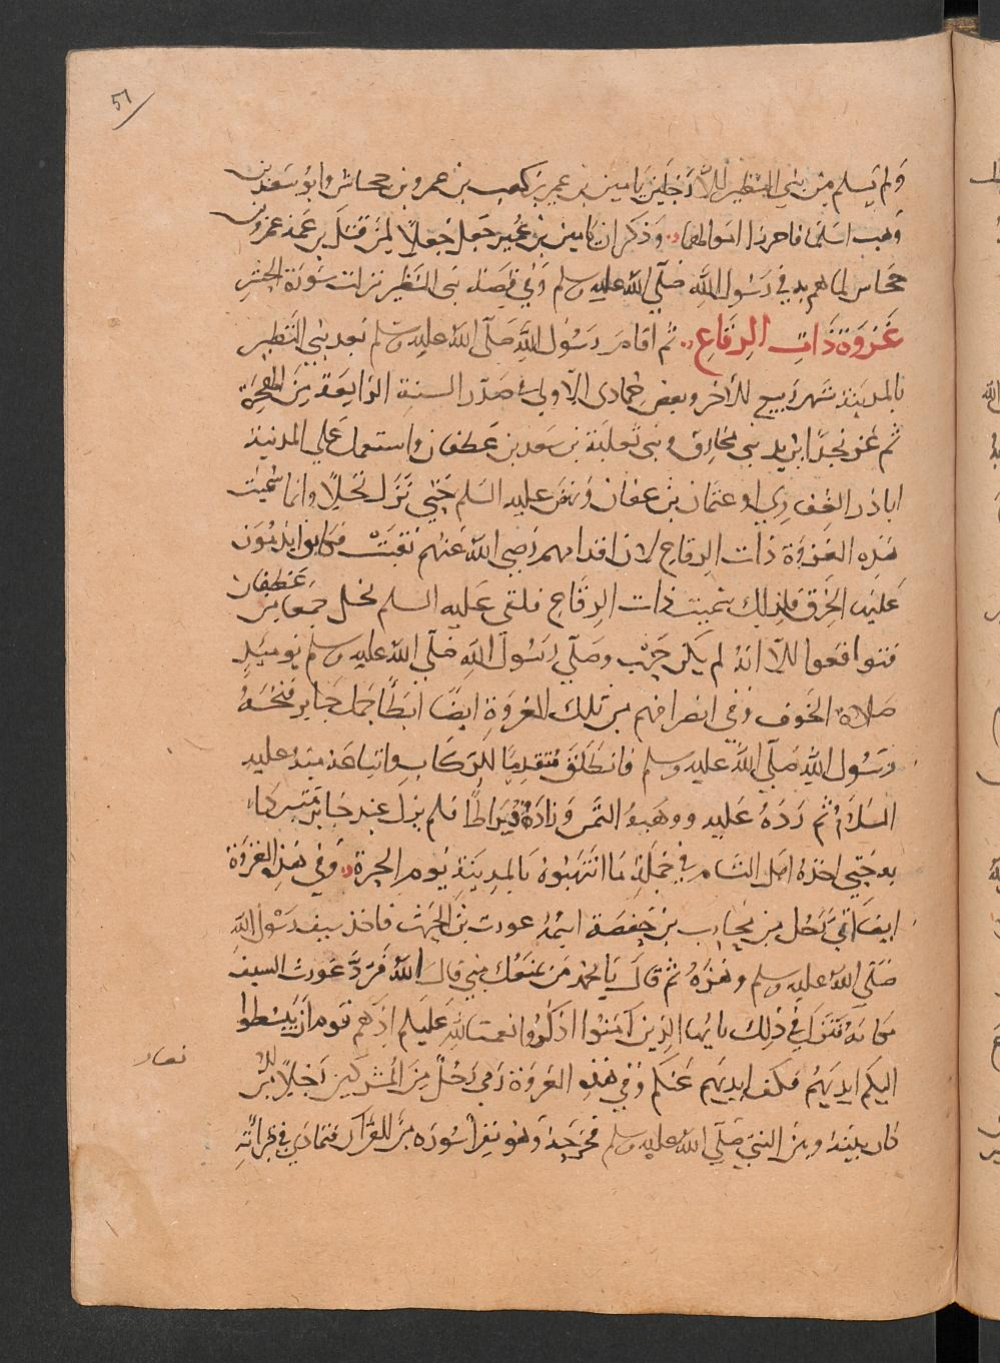 51
ولم يسلم من بني النظير الا رجلين يامين بن عمير بن كعب بن عمرو بن جحاش وابو سعد بن
وهب اسلما فاحرزا اموالهما وذكر ان يامين بن عمير جعل جعلا لمن قتل بن عمه عمرو بن
جحاس لما هم به في رسول الله صلى الله عليه وسلم وفي قصة بني النظير نزلت سورة الحشر
غزوة ذات الرقاع ثم اقام رسول الله صلى الله عليه وسلم بعد بني النظير
بالمدينة شهر ربيع الاخر وبعض جمادى الاولى صدر السنة الرابعة من الهجرة
ثم غزى نجدا يريد بني محارق وبني ثعلبة بن سعد بن غطفان واستعمل على المدينة
اباذر الغفري او عثمان بن عفان ونهض عليه السلم حتى نزل نخلا وانما سميت
هذه الغزوة ذات الرقاع لان اقدامهم رضي الله عنهم نقبت فكانوا يلفون
عليها الخرق فلذلك سميت ذات الرقاع فلقى عليه السلم نخل جمعا من غطفان
فتواقعوا الا انه لم يكن حرب وصلى رسول الله صلى الله عليه وسلم يوميذ
صلاة الخوف وفي انصرافهم من تلك الغزوة ايضا ابطأ جمل جابر فنخسه
رسول الله صلى الله عليه وسلم فانطلق متقدما للركاب وابتاعه منه عليه
السلام ثم رده عليه ووهبه الثمن وزاده قيراطا فلم يزل عند جابر متبركا
به حتى اخذه اهل الشام في جملة ما انتهبوه بالمدينة يوم الحرة وفي هذه الغزوة
ايضا اتى رجل من محارب بن حفصة اسمه عورث بن الحرث فاخذ سيف رسول الله
صلى الله عليه وسلم وهزه ثم قال يا محمد من يمنعك مني قال الله فرد عورث السيف
مكانه فنزل في ذلك يايها الذين آمنوا اذكروا نعمت الله عليكم اذ هم قوم ان يبسطوا
اليكم ايديهم فكف ايديهم عنكم وفي هذه الغزوة رمى رجل من المشركين رجلا من
كان بينه وبين النبي صلى الله عليه وسلم فجرحه وهو يقرا سورة من القرآن فتمادى في قرائته